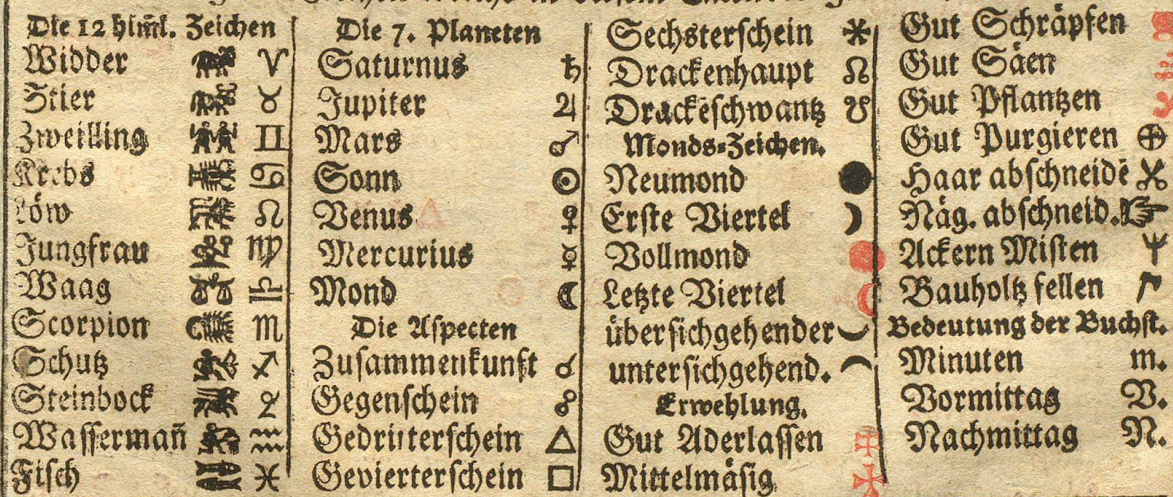 Die 12 himl. Zeichen
Widder ♈
Stier ♉
Zweilling ♊
Krebs ♋
Löw ♌
Jungfrau ♍
Waag ♎
Scorpion ♏
Schutz ♐
Steinbock ♑
Wassermañ ♒
Fisch ♓
Die 7. Planeten
Saturnus ♄
Jupiter ♃
Mars ♂
Sonn ☉
Venus ♀
Mercurius ☿
Mond ☾
Die Aspecten
Zusammenkunfft ☌
Gegenschein ☍
Gedritterschein △
Gevierterschein □
Sechsterschein ⚹
Drackenhaupt ☊
Drackēschwantz ☋
Monds-Zeichen.
Neumond ●
Erste Viertel ☽
Vollmond
Letzte Viertel ☾
übersichgehender
untersichgehend.
Erwehlung.
Gut Aderlassen
Mittelmäsig
Gut Schräpfen
Gut Säen
Gut Pflantzen
Gut Purgieren ⊕
Haar abschneidē
Näg. abschneid. ☞
Ackern Misten
Bauholtz fellen
Bedeutung der Buchst.
Minuten m.
Vormittag V.
Nachmittag N.